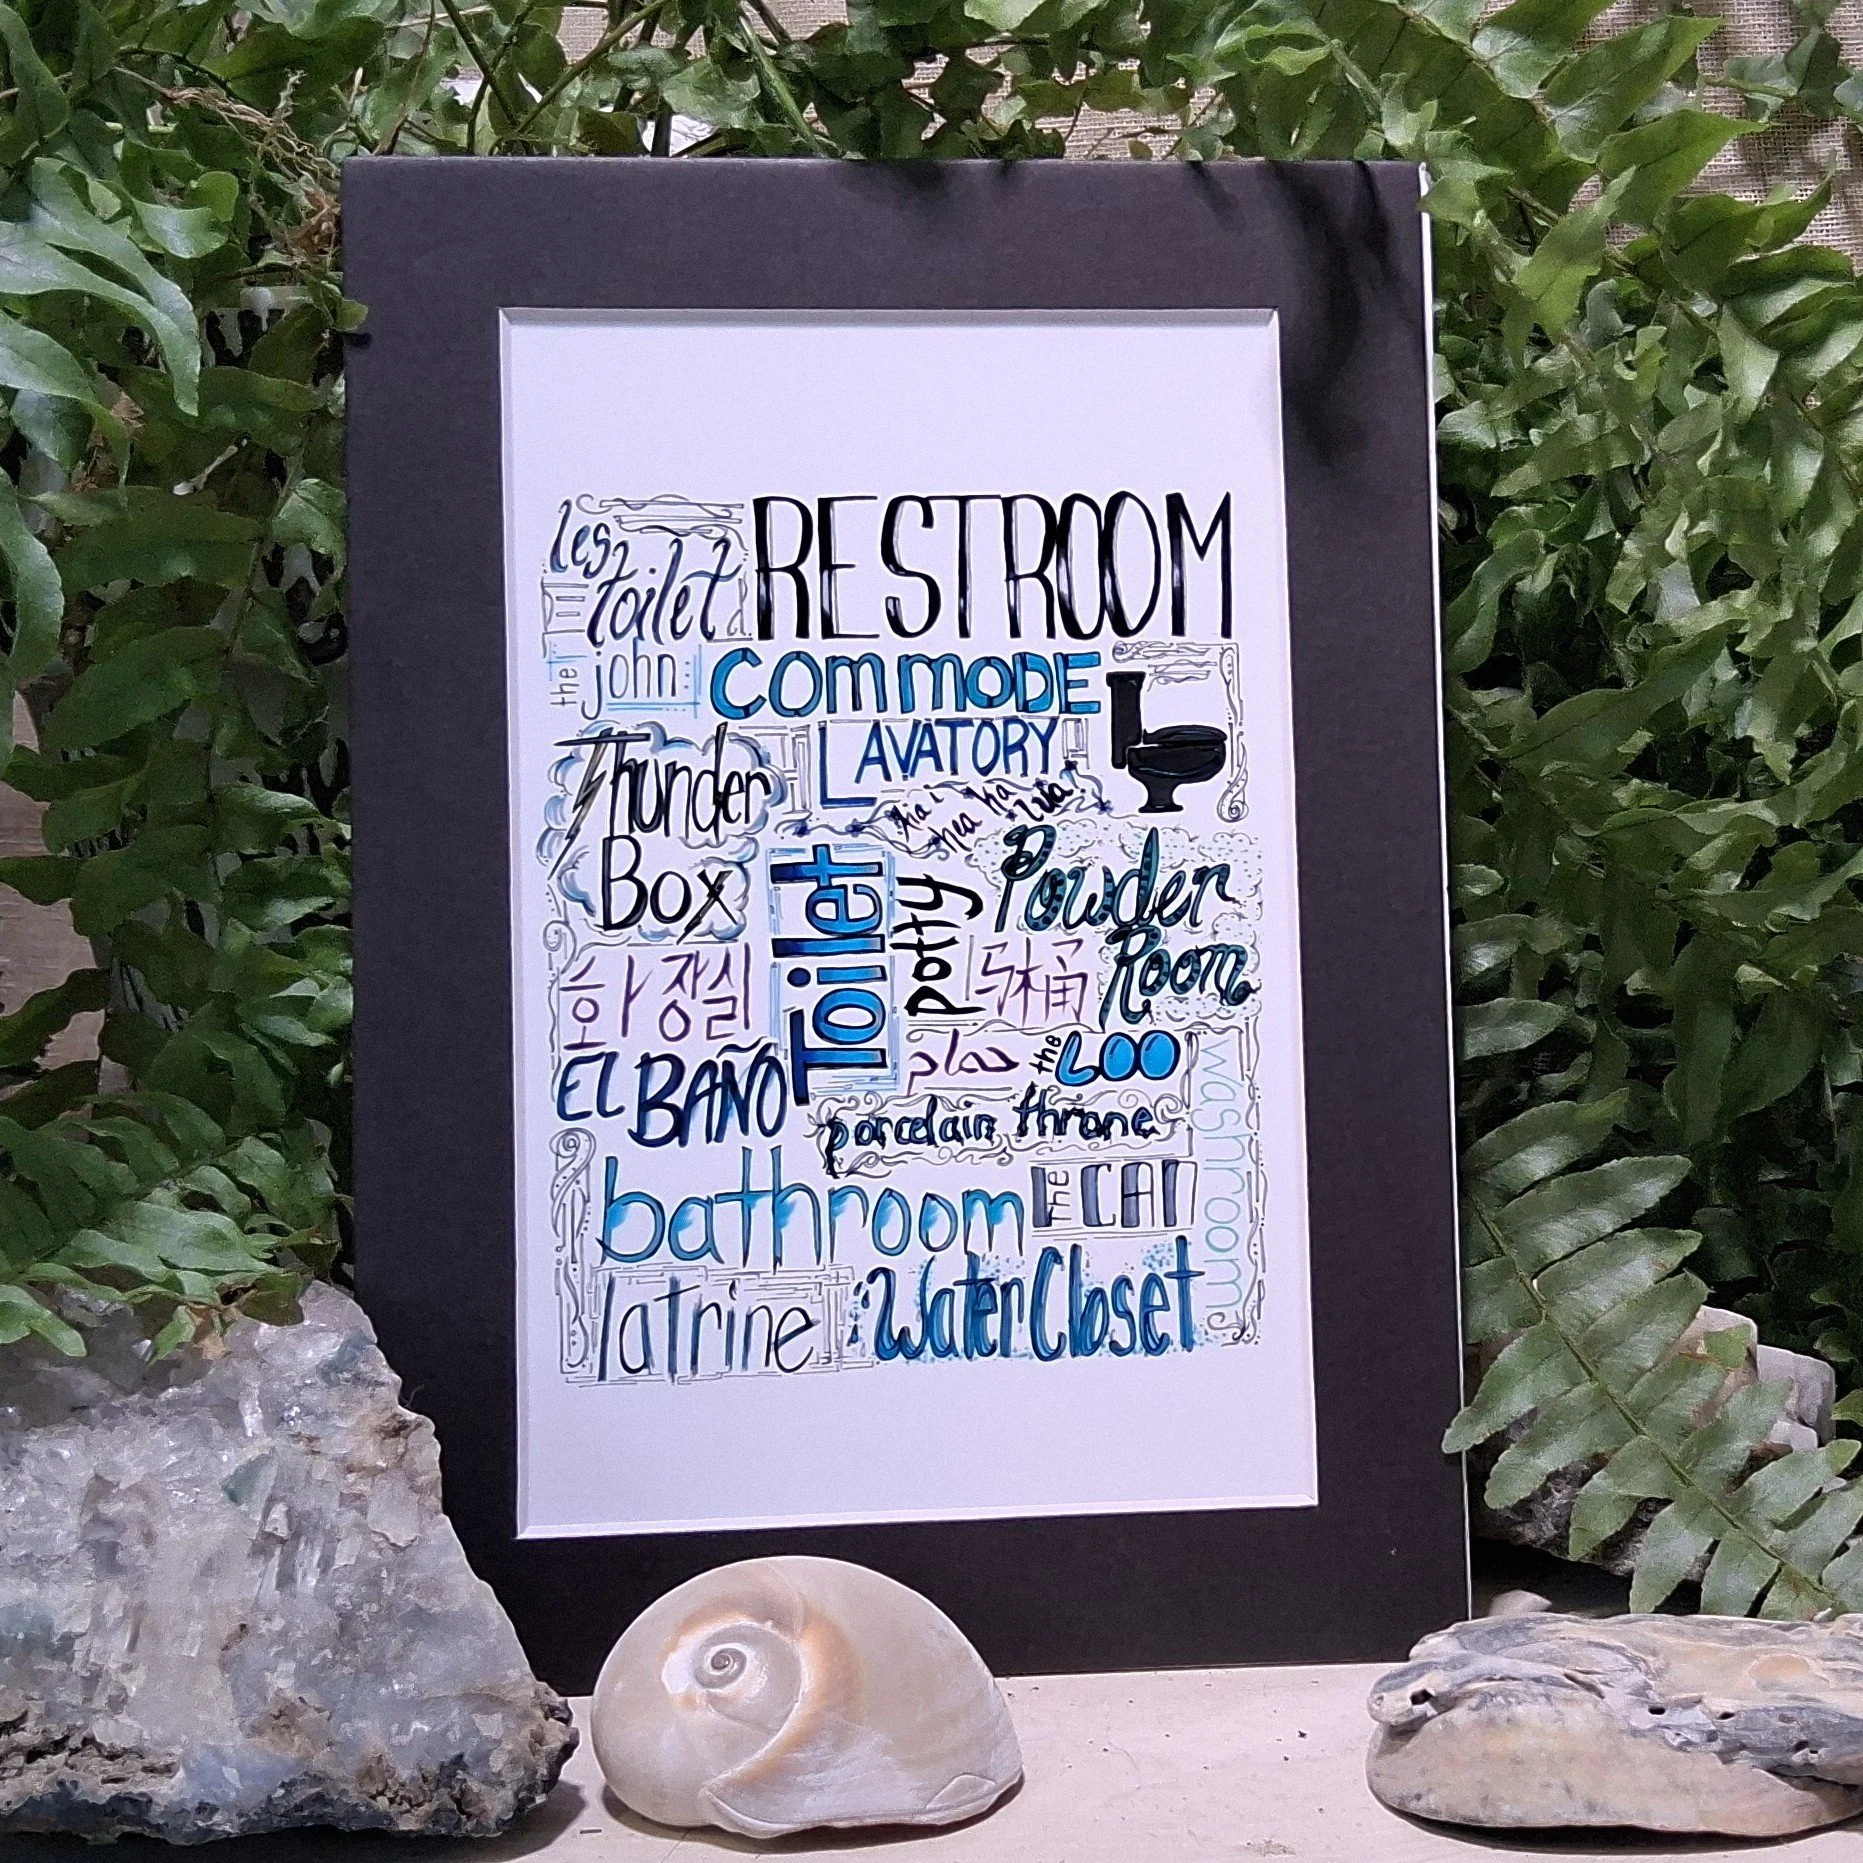 les toilet
RESTROOM
the john
COMMODE
LAVATORY
Thunder
Box
Toilet
potty
Powder
Room
화장실
马桶
حمام
the LOO
EL BAÑO
porcelain throne
washroom
bathroom
THE CAN
latrine
Water Closet